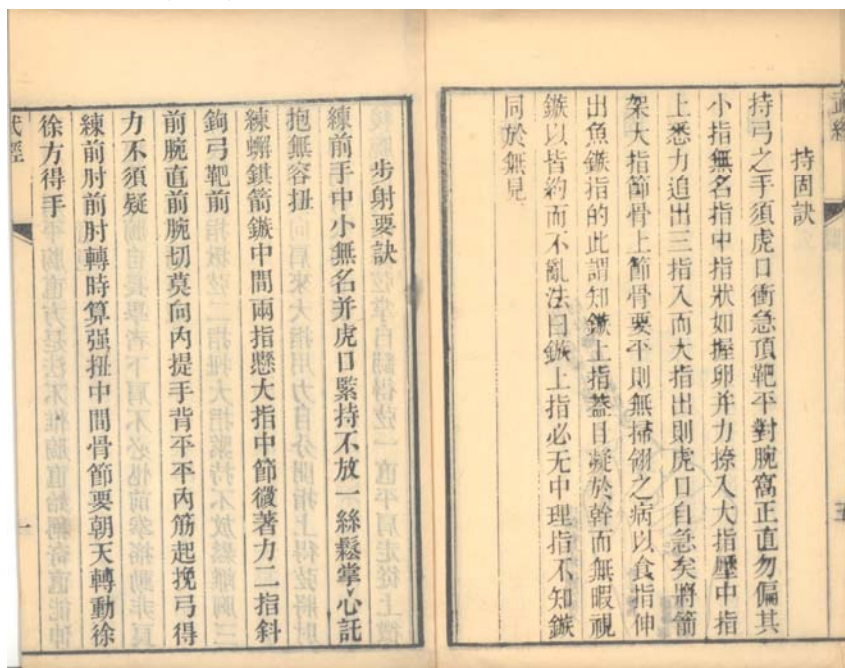 武經
持固訣
持弓之手須虎口衝急頂靶平對腕窩正直勿偏其
小指無名指中指狀如握卵并力捺入大指壓中指
上悉力追出三指入而大指出則虎口自急矣將箭
架大指節骨上節骨要平則無掃翎之病以食指伸
出魚鏃指的此謂知鏃上指葢目凝於幹而無暇視
鏃以皆約而不亂法曰鏃上指必无中理指不知鏃
同於無見
步射要訣
練前手中小無名并虎口緊持不放一絲鬆掌心託
抱無容扭
練蠏鉗箭鏃中間兩指懸大指中節微著力二指斜
鉤弓靶前
前腕直前腕切莫向內提手背平平內筋起挽弓得
力不須疑
練前肘前肘轉時算强扭中間骨節要朝天轉動徐
徐方得手
武經
一